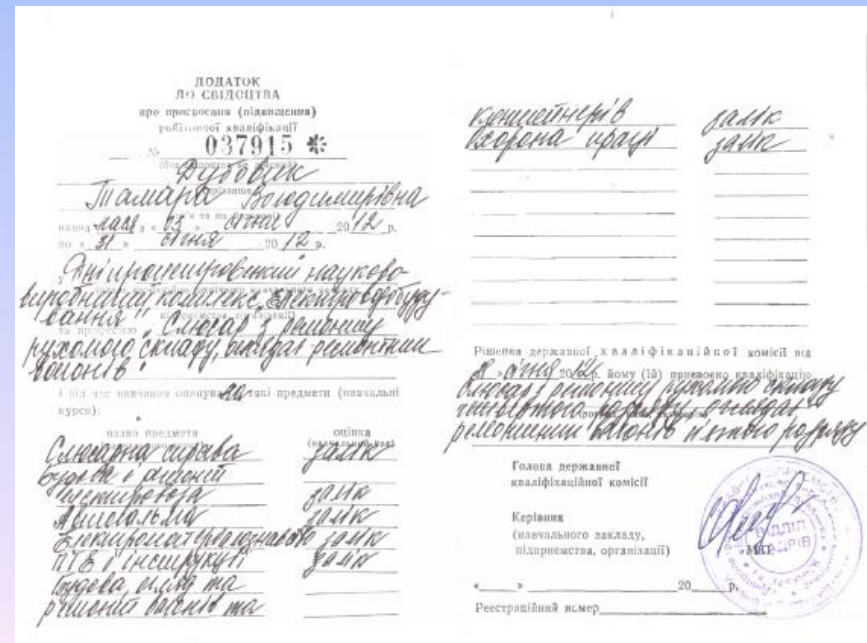 ДОДАТОК
ДО СВІДОЦТВА
про присвоєння (підвищення)
робітничої кваліфікації
№ 037915 *
Тамара Володимирівна
навчалася з « 03 » січня 2012 р.
по « 31 » січня 2012 р.
Дніпропетровський науково-
виробничий комплекс „Електрообладу-
вання"
за професією „Слюсар з ремонту
рухомого складу, оглядач ремонтник
вагонів"
і під час навчання опанувала такі предмети (навчальні
курси):
назва предмета оцінка
Слюсарна справа залік
Будова і ремонт
електровоза залік
Автогальма залік
Електроматеріалознавство залік
ПТЕ і інструкції залік
Будова, огляд та
ремонт вагонів та
контейнерів залік
Охорона праці залік
Рішення державної кваліфікаційної комісії від
січня 2012 р. йому (їй) присвоєно кваліфікацію
Слюсар з ремонту рухомого складу
оглядач
ремонтник вагонів п'ятого розряду
Голова державної
кваліфікаційної комісії
Керівник
(навчального закладу,
підприємства, організації)
МП
ВІДДІЛ
КАДРІВ
« » 20 р.
Реєстраційний номер